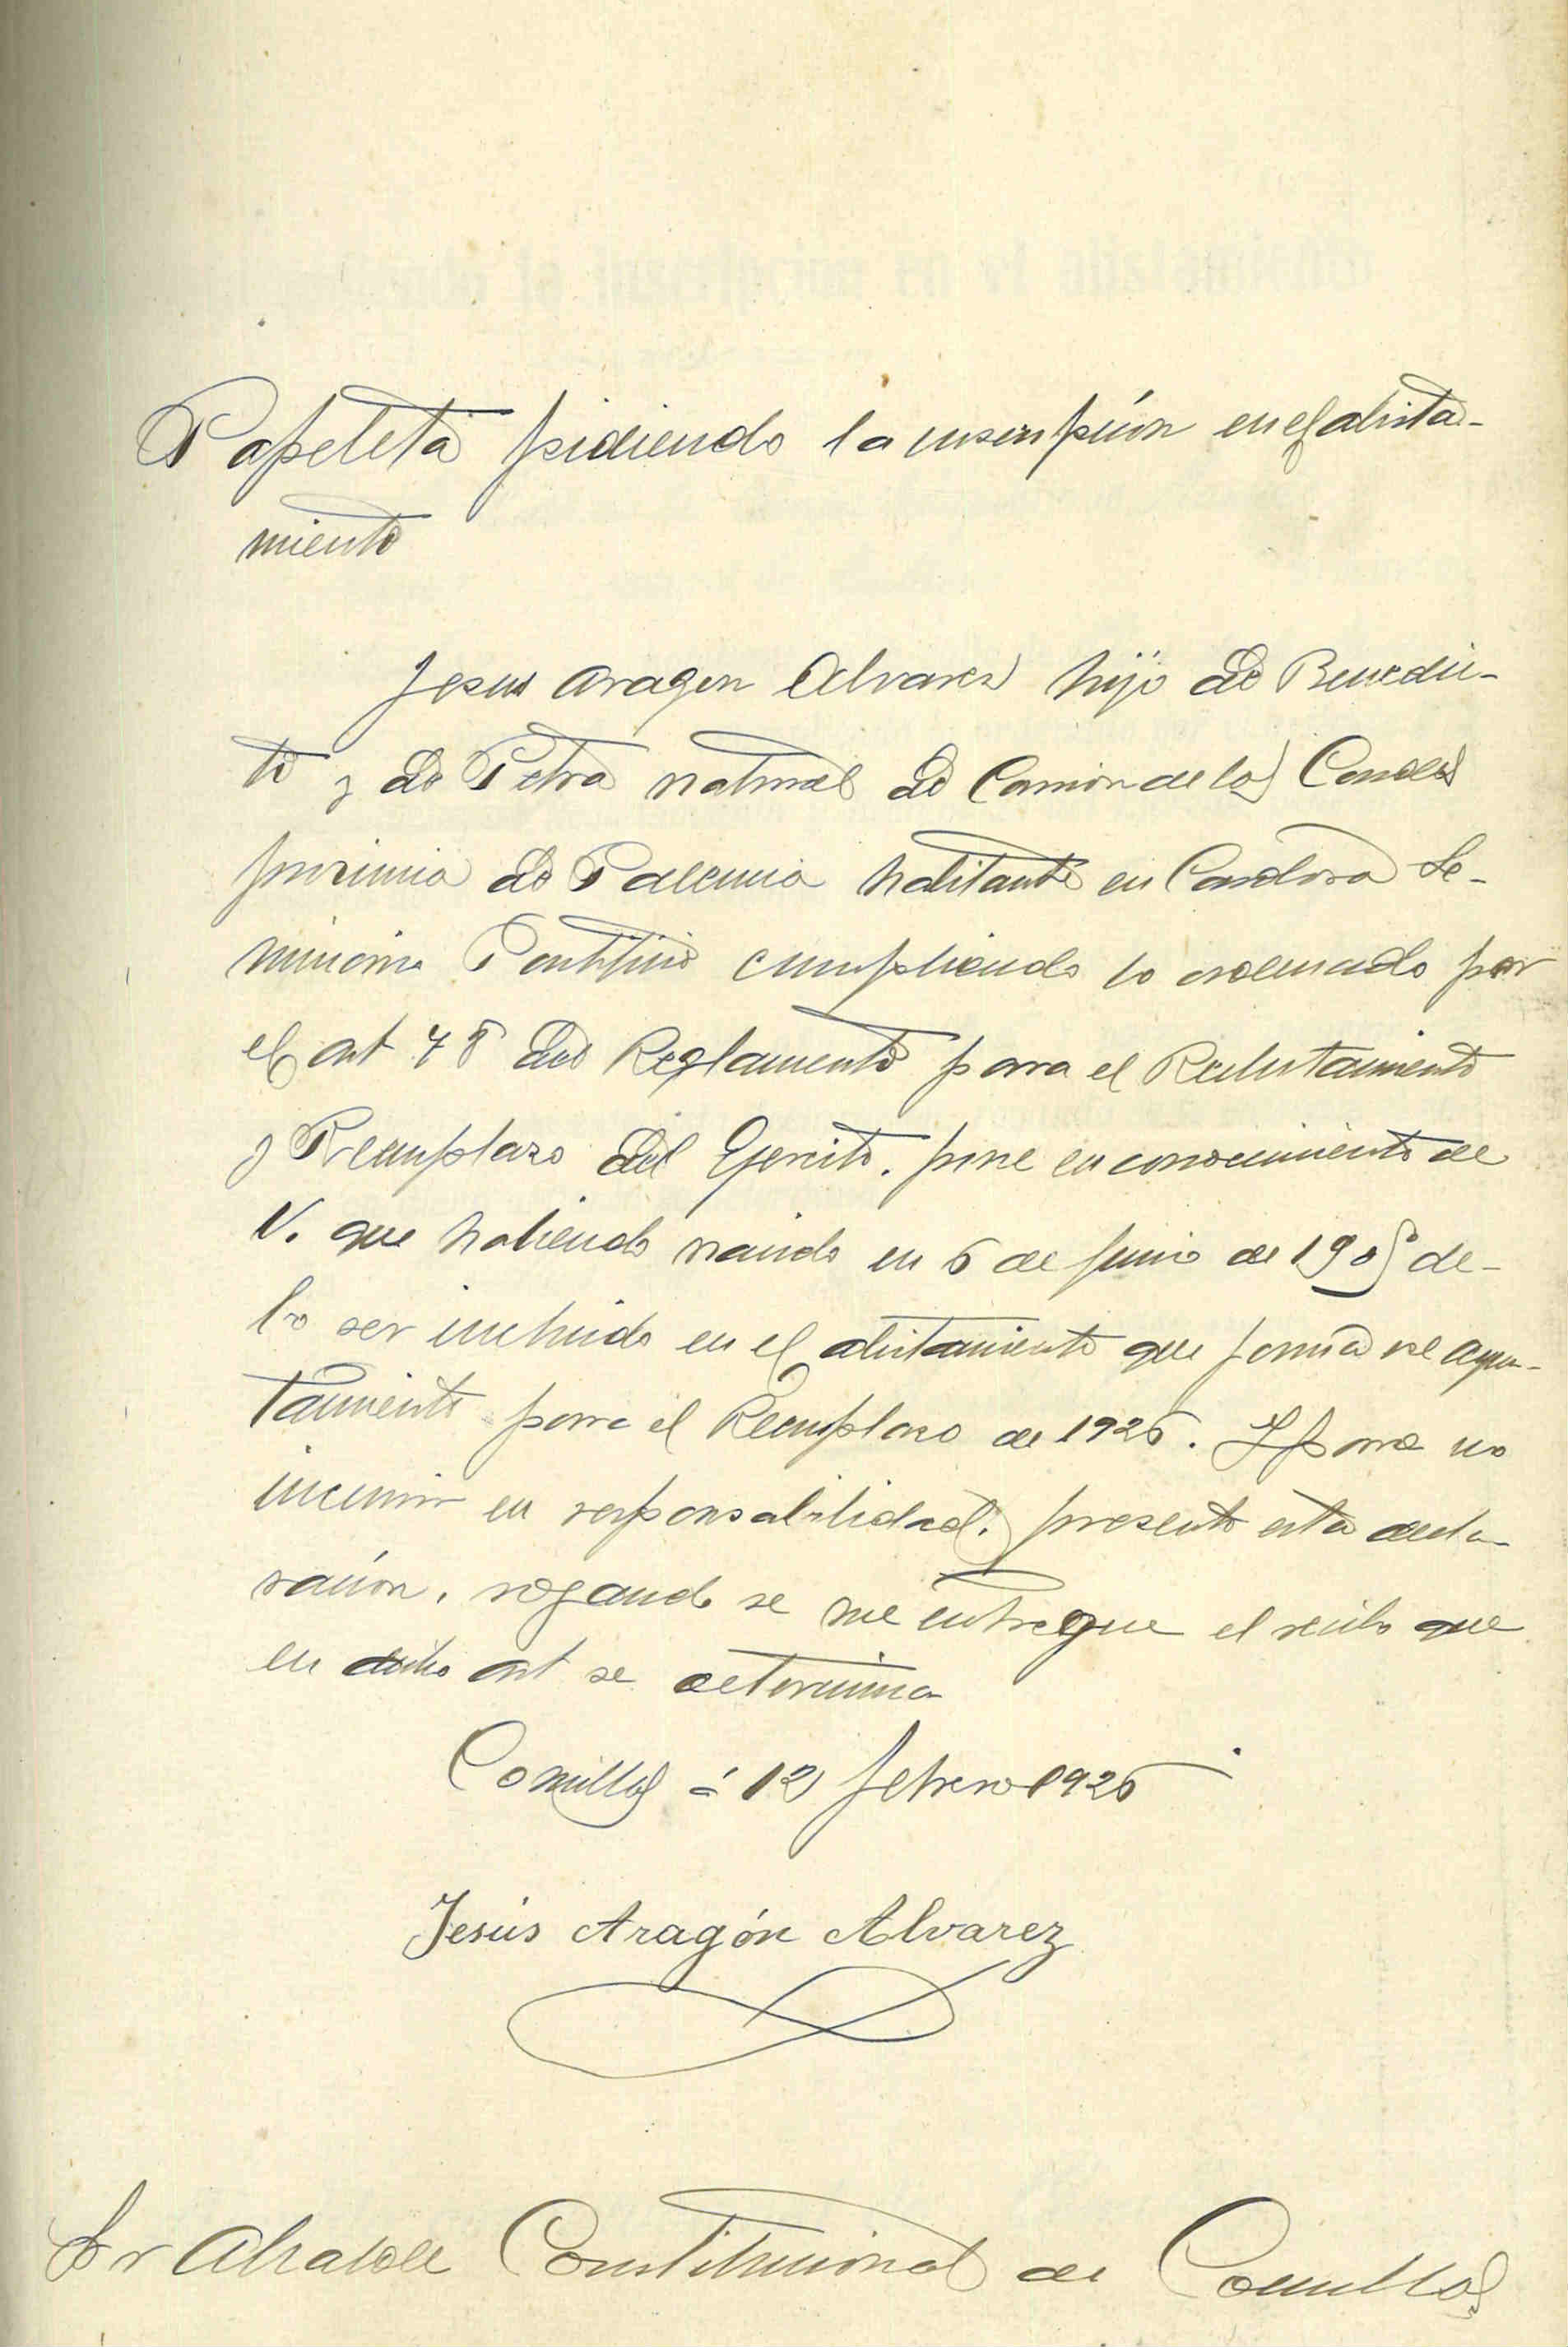 Papeleta pidiendo la inscripción en el alista-
miento
Jesus Aragon Alvarez hijo de Benedic-
to y de Petra natural de Carrion de los Condes
provincia de Palencia habitante en Cardosa Se-
minario Pontificio cumpliendo lo ordenado por
el art 78 del Reglamento para el Reclutamiento
y Reemplazo del Ejercito. pone en conocimiento de
V. que habiendo nacido en 6 de Junio de 1905 de-
bo ser incluido en el alistamiento que forma ese ayun-
tamiento para el Reemplazo de 1926. Y para no
incurrir en responsabilidad. presento esta decla-
ración, rogando se me entregue el recibo que
en dicho art se determina
Comillas á 12 febrero 1926
Jesús Aragón Alvarez
Sr Alcalde Constitucional de Comillas